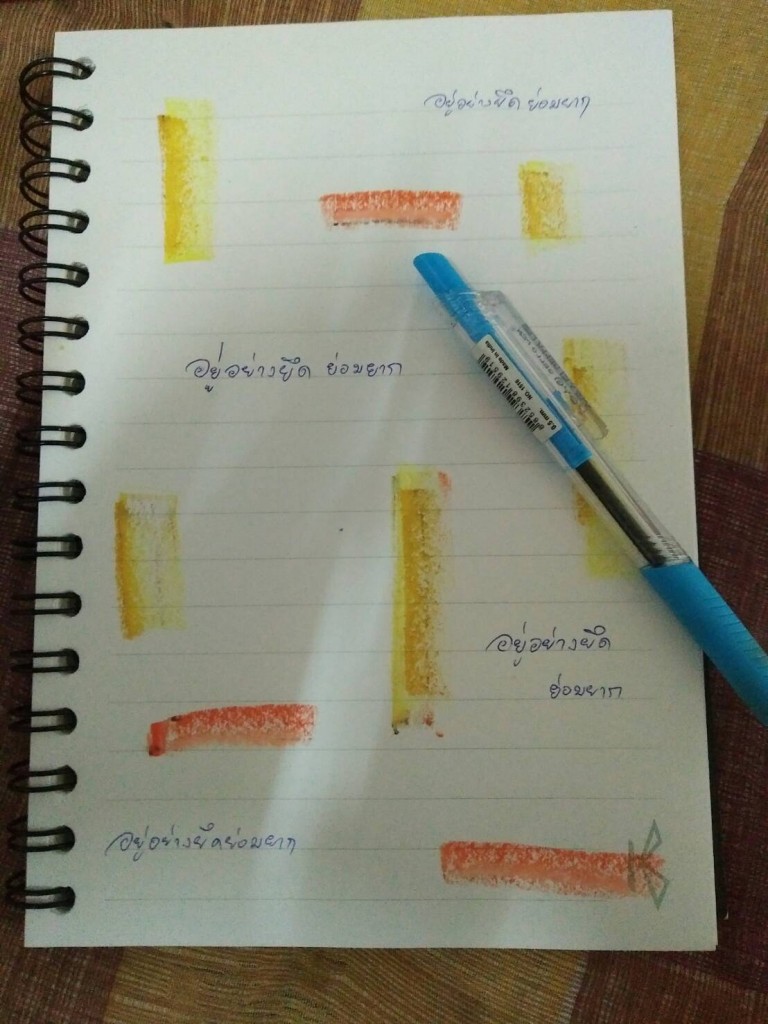 อยู่อย่างยึด ย่อมยาก
อยู่อย่างยึด ย่อมยาก
อยู่อย่างยึด
ย่อมยาก
อยู่อย่างยึดย่อมยาก
0.5 mm.
NO. 1010
Made in India